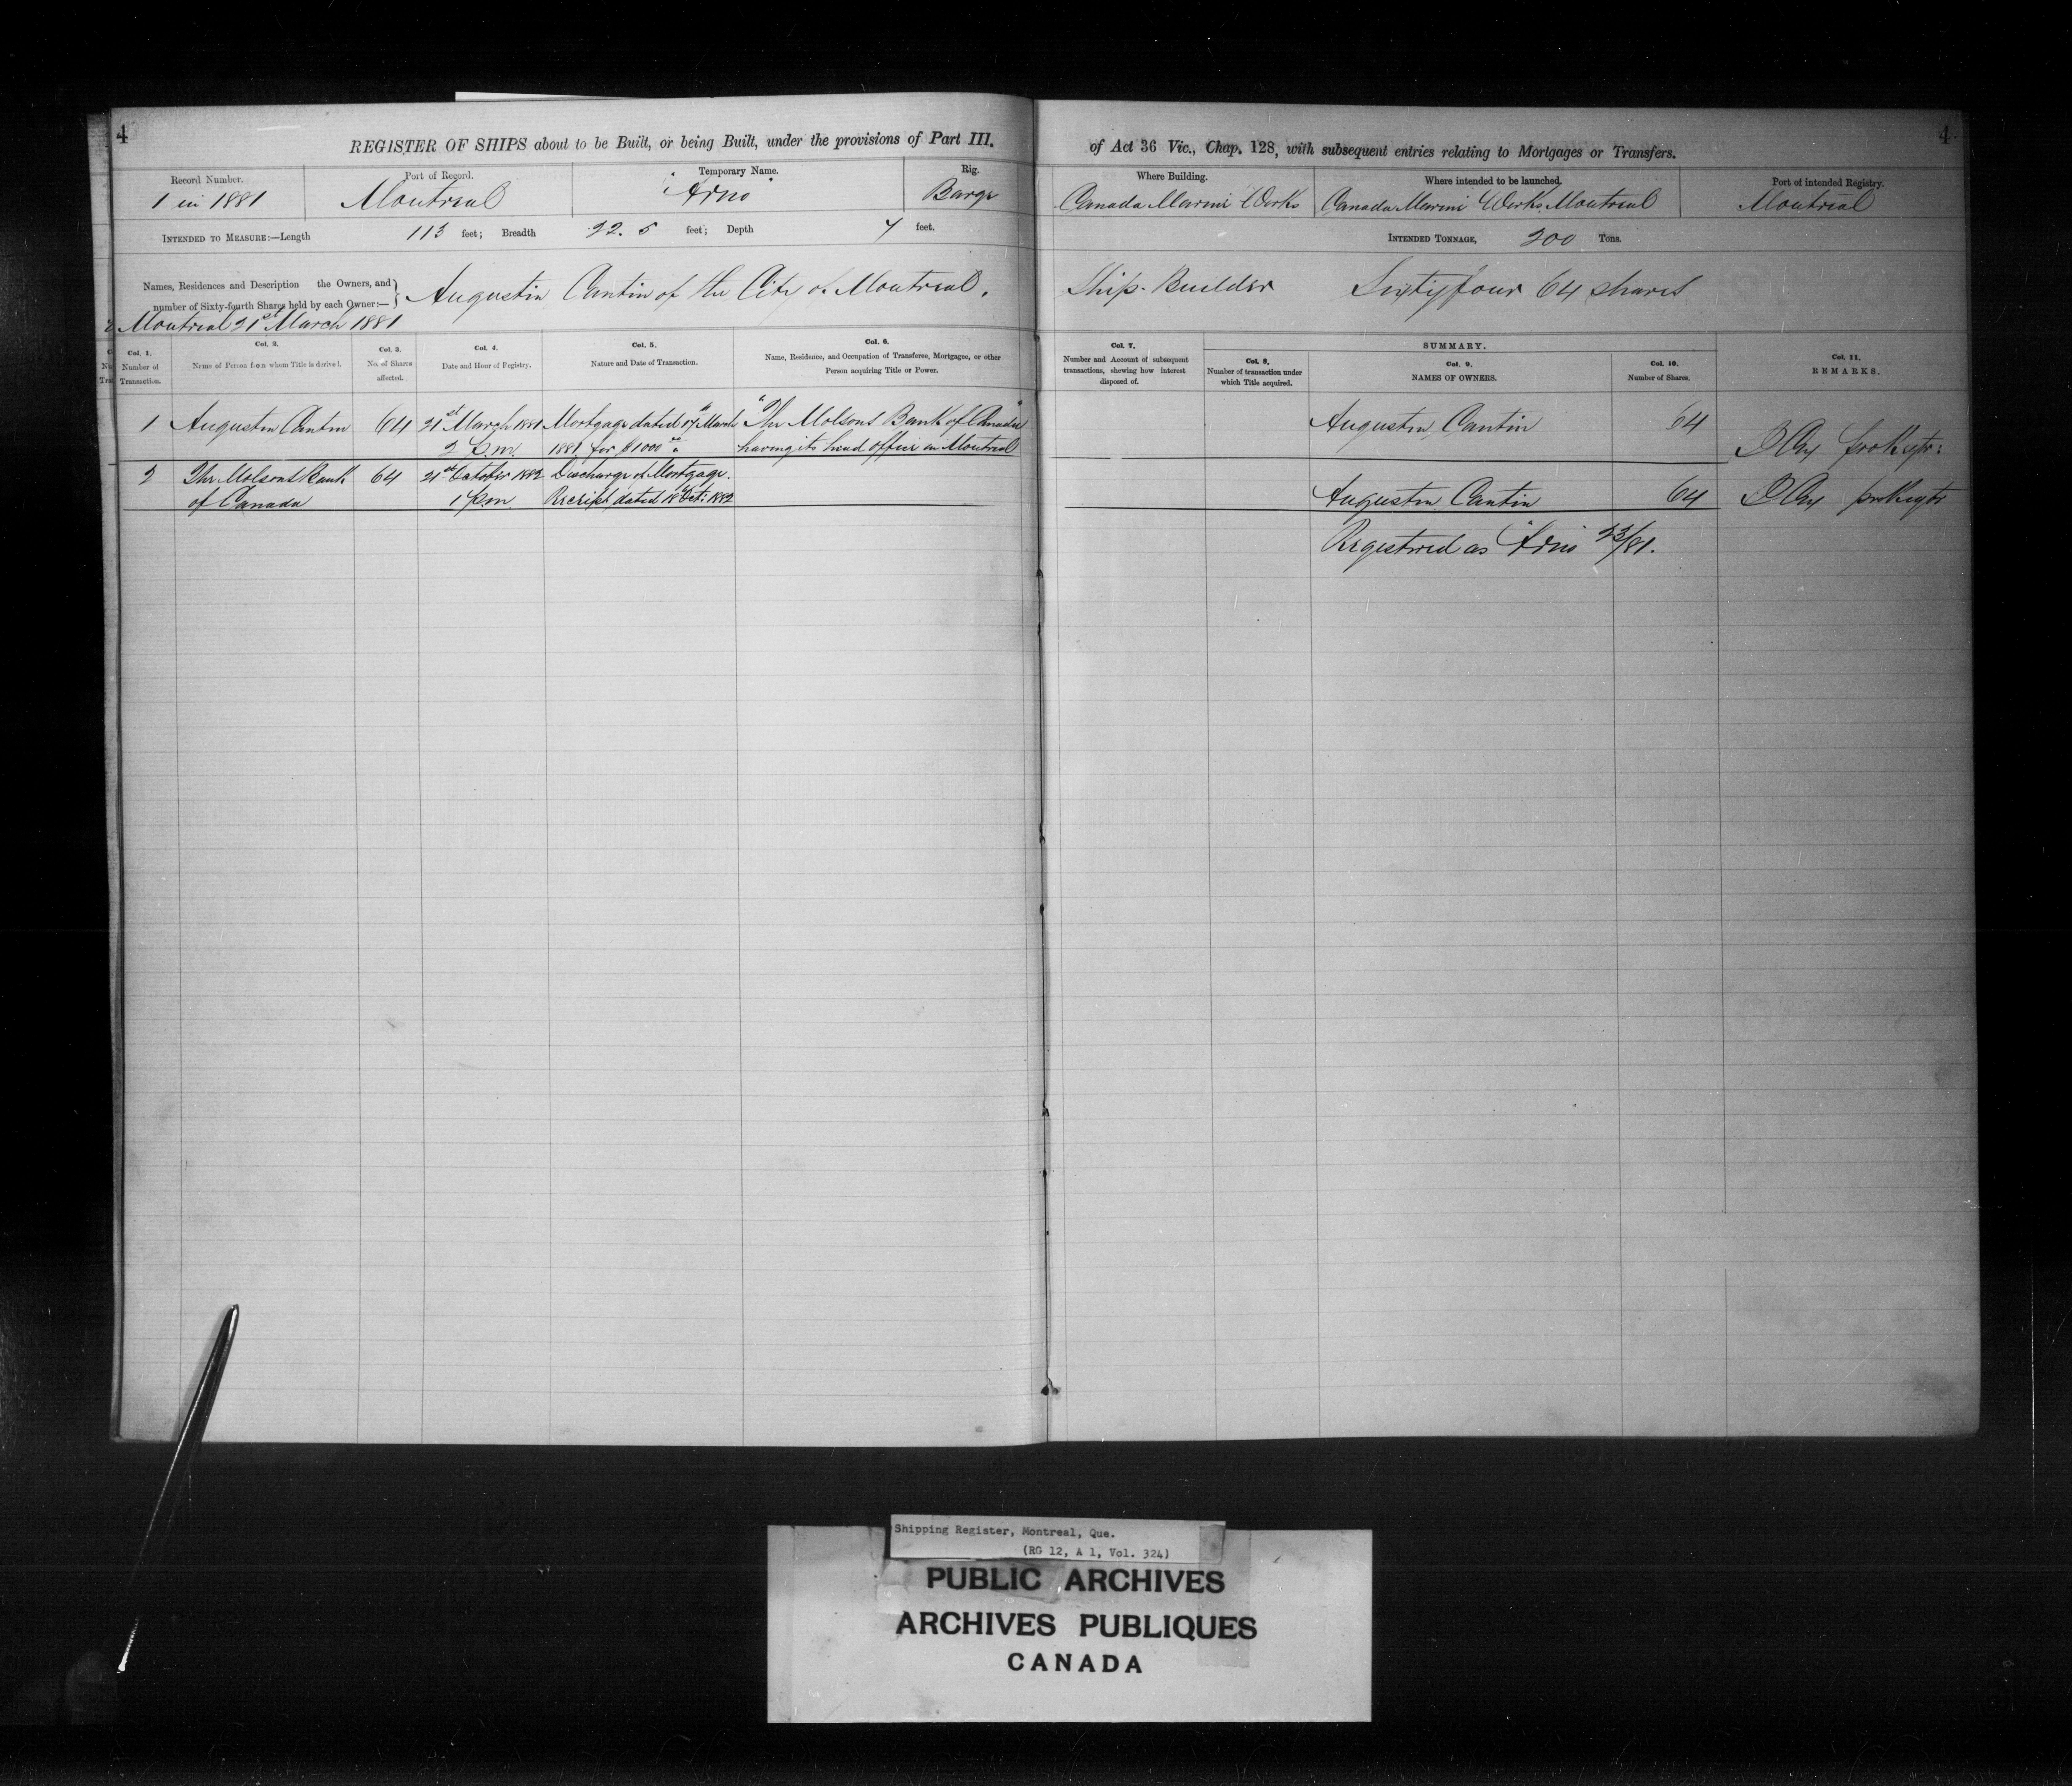 4
REGISTER OF SHIPS about to be Built, or being Built, under the provisions of Part III.
of Act 36 Vic., Chap. 128, with subsequent entries relating to Mortgages or Transfers.
4
Record Number.
1 in 1881
Port of Record.
Montreal
Temporary Name.
"Arno"
Rig.
Barge
Where Building.
Canada Marine Works
Where intended to be launched.
Canada Marine Works Montreal
Port of intended Registry.
Montreal
INTENDED TO MEASURE:—Length 113 feet; Breadth 22.5 feet; Depth 7 feet.
INTENDED TONNAGE, 200 Tons.
Names, Residences and Description the Owners, and
number of Sixty-fourth Shares held by each Owner:—
Augustin Cantin of the City of Montreal.
Ship-Builder Sixty four 64 shares
Montreal 21st March 1881
Col. 1.
Number of
Transaction.
Col. 2.
Name of Person from whom Title is derived.
Col. 3.
No. of Shares
affected.
Col. 4.
Date and Hour of Registry.
Col. 5.
Nature and Date of Transaction.
Col. 6.
Name, Residence, and Occupation of Transferee, Mortgagee, or other
Person acquiring Title or Power.
Col. 7.
Number and Account of subsequent
transactions, showing how interest
disposed of.
SUMMARY.
Col. 8.
Number of transaction under
which Title acquired.
Col. 9.
NAMES OF OWNERS.
Col. 10.
Number of Shares.
Col. 11.
REMARKS.
1 Augustin Cantin 64 21st March 1881 Mortgage dated March "The Molsons Bank of Canada"
2 p.m. 1881 for $1000 having its head office in Montreal
Augustin Cantin 64
2 The Molsons Bank 64 21st October 1882 Discharge of Mortgage.
of Canada 1 p.m Receipt dated 18 Oct: 1882
Augustin Cantin 64
Registered as "Arno" 23/81.
Shipping Register, Montreal, Que.
(RG 12, A 1, Vol. 324)
PUBLIC ARCHIVES
ARCHIVES PUBLIQUES
CANADA